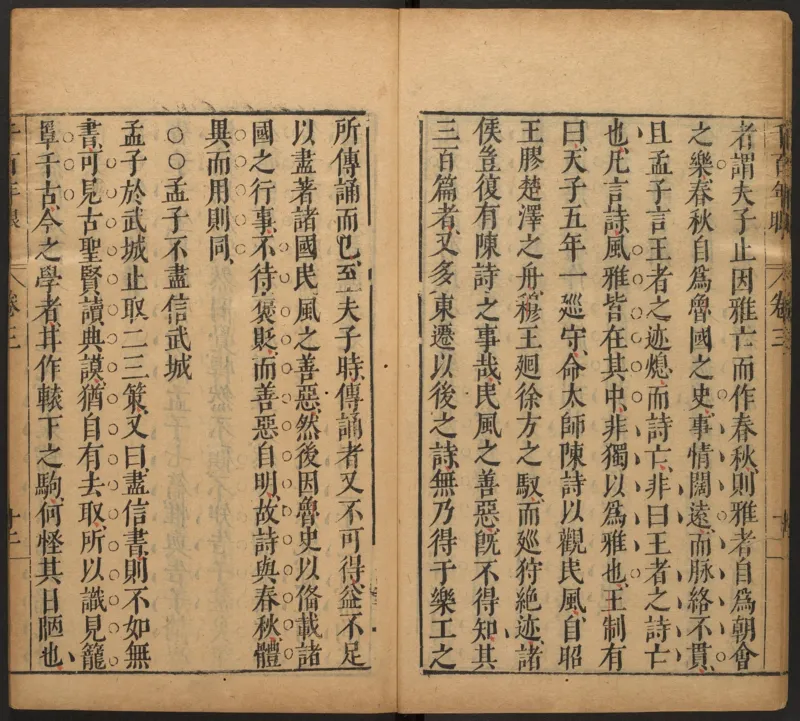 者謂夫子止因雅亡而作春秋則雅者自爲朝會
之樂春秋自爲魯國之史事情闊遠而脉絡不貫
且孟子言王者之迹熄而詩亡非曰王者之詩亡
也凡言詩風雅皆在其中非獨以爲雅也王制有
曰天子五年一廵守命太師陳詩以觀民風自昭
王膠楚澤之舟穆王廻徐方之馭而廵狩絶迹諸
侯豈復有陳詩之事哉民風之善惡旣不得知其
三百篇者又多東遷以後之詩無乃得于樂工之
所傳誦而已至夫子時傳誦者又不可得益不足
以盡著諸國民風之善惡然後因魯史以俻載諸
國之行事不待褒貶而善惡自明故詩與春秋體
異而用則同
○○孟子不盡信武城
孟子於武城止取二三策又曰盡信書則不如無
書可見古聖賢讀典謨猶自有去取所以識見籠
罩千古今之學者井作轅下之駒何怪其日陋也
千百年眼 卷三 十二